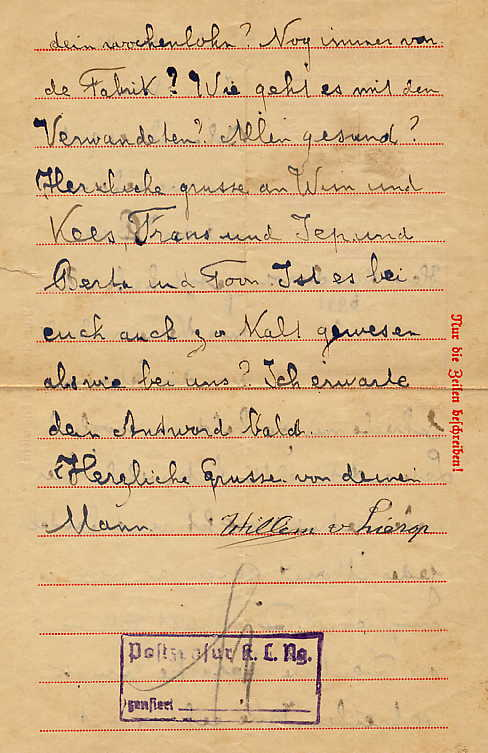 dein wochenlohn? Nog immer von
de Fabrik? Wie geht es mit den
Verwandeten? Allen gesund?
Herzliche grusse an Wim und
Kees, Frans und Jep und
Berta und Toon. Ist es bei
euch auch zo Kalt gewesen
als wie bei uns? Ich erwarte
dein Antword bald.
Herzliche Grusse von deinen
Mann. Willem v Lierop
Nur die Zeilen beschreiben!
Postzensur K. L. Ng.
zensiert